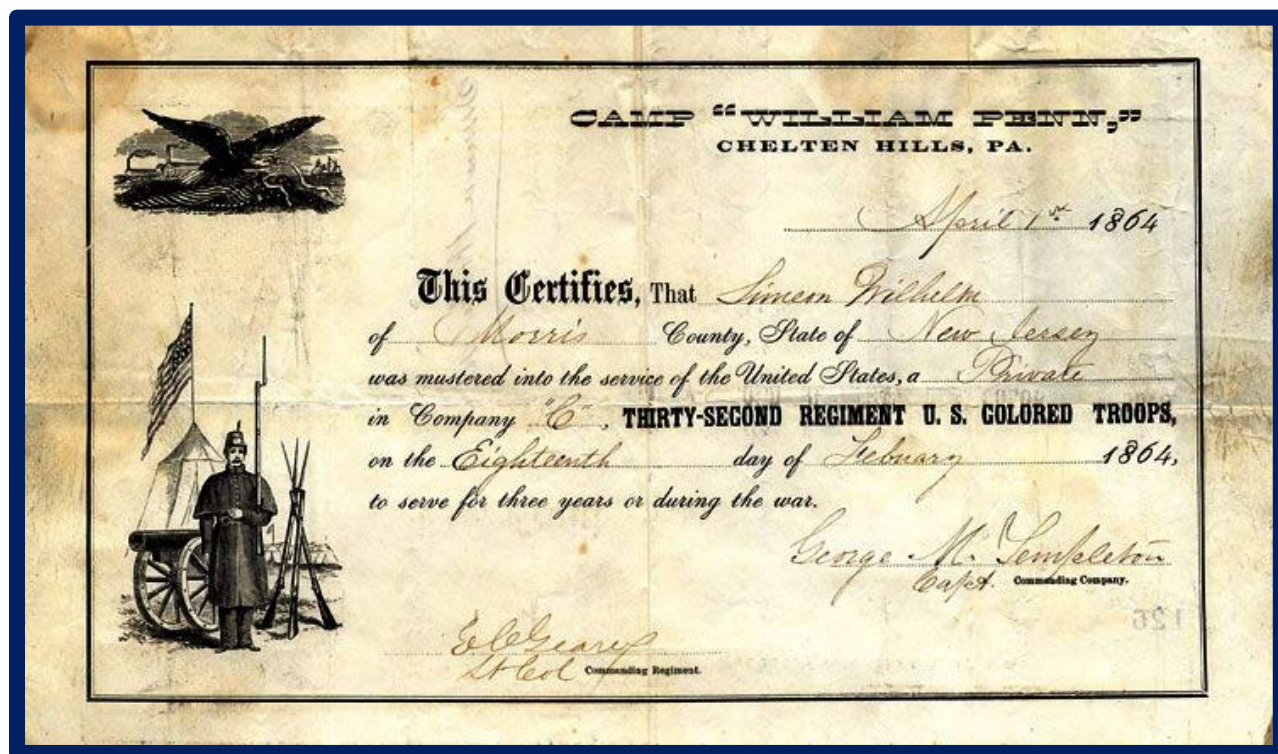 CAMP "WILLIAM PENN,"
CHELTEN HILLS, PA.
April 1st 1864
This Certifies, That Simeon Wilhelm
of Morris County, State of New Jersey
was mustered into the service of the United States, a Private
in Company "C", THIRTY-SECOND REGIMENT U. S. COLORED TROOPS,
on the Eighteenth day of Febuary 1864,
to serve for three years or during the war.
George M. Templeton
Capt. Commanding Company.
E C Geary
Lt Col Commanding Regiment.
126